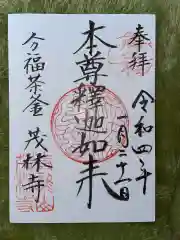 奉拝
令和四年
一月二十一日
本尊釋迦如来
分福茶釜
茂林寺